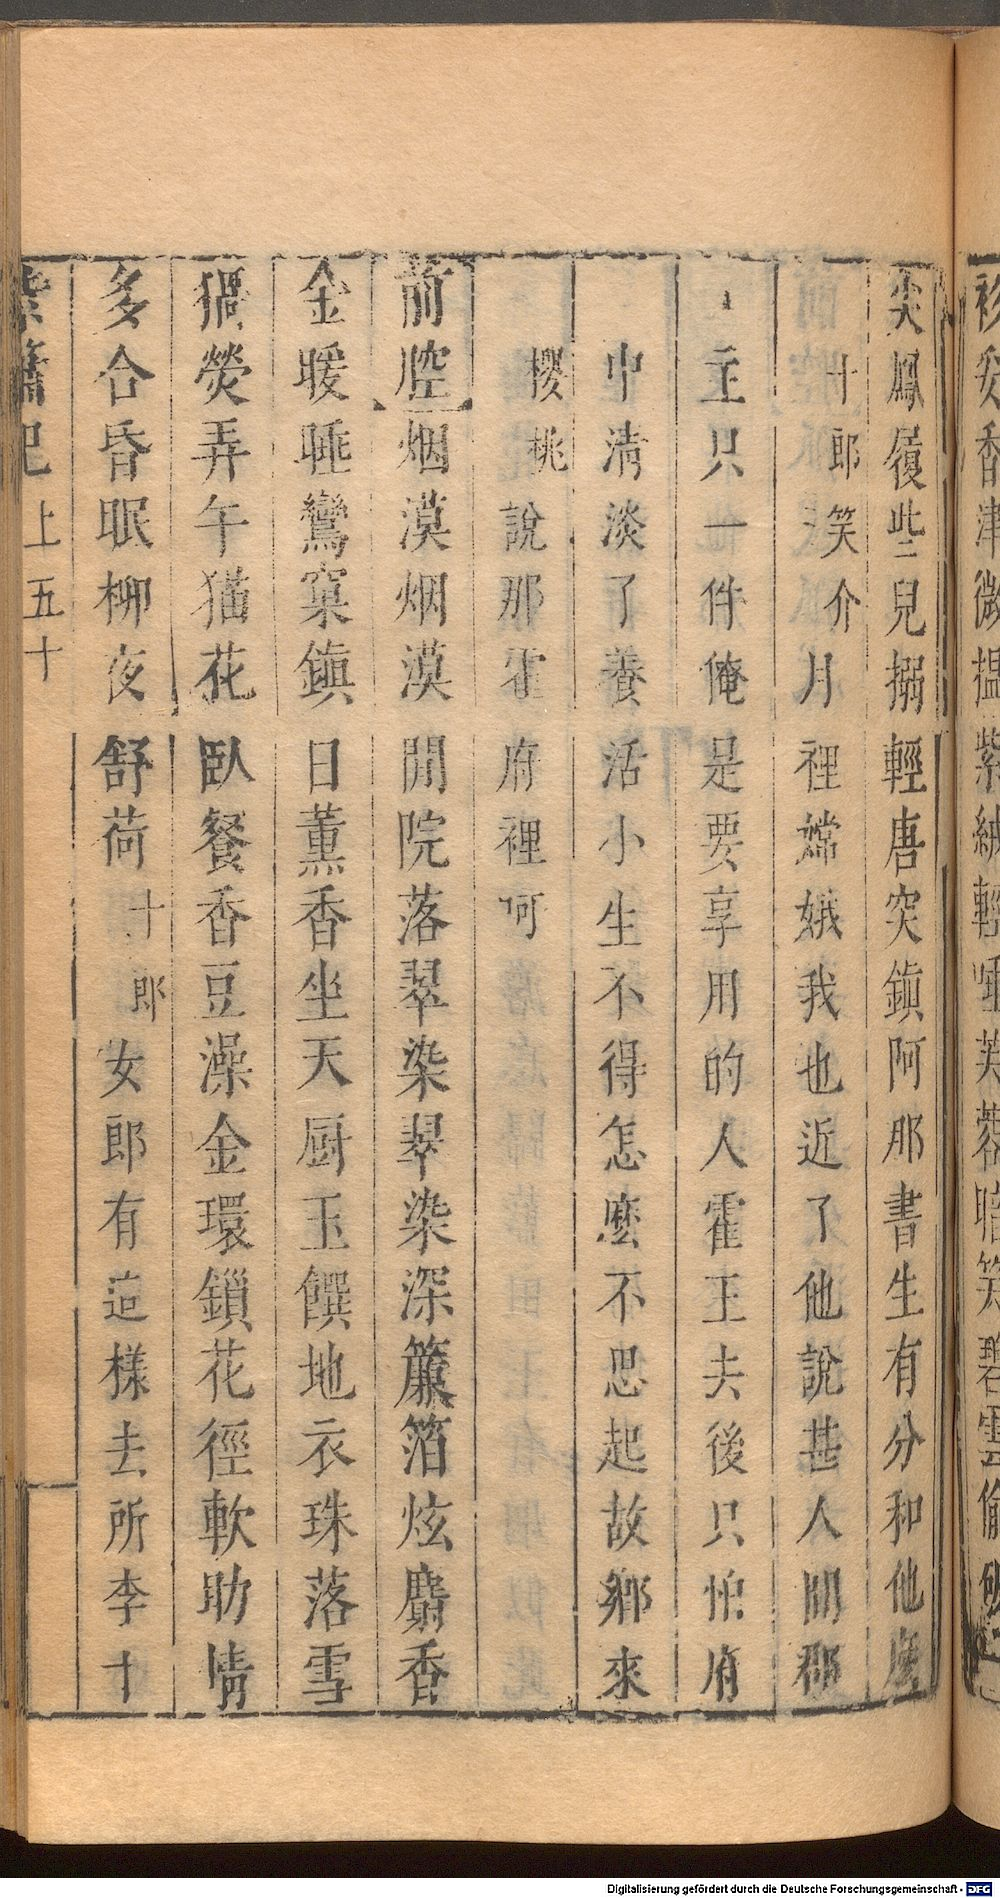 衫安香津微搵紫絨輕唾芙蓉暗笑碧雲偷
尖鳳履些兒搦輕唐突鎮阿那書生有分和他
十郎笑介月裡嫦娥我也近了他說甚人間郡
主只一件俺是要享用的人霍王去後只怕府
中清淡了養活小生不得怎麼不思起故鄉來
櫻桃說那霍府裡呵
前腔烟漠烟漠閒院落翠染翠染深簾箔炫麝香
金暖睡鸞窠鎮日薰香坐天厨玉饌地衣珠落雪
猧熒弄午猫花臥餐香豆澡金環鎖花徑軟助情
多合昏眠柳夜舒荷十郎女郎有這樣去所李十
紫簫記上五十
Digitalisierung gefördert durch die Deutsche Forschungsgemeinschaft - DFG